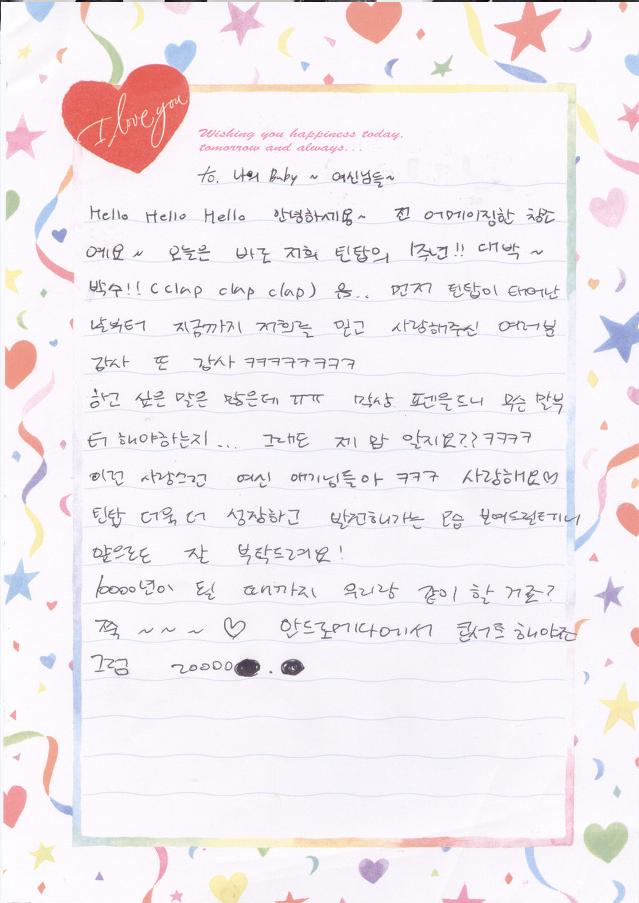 I love you
Wishing you happiness today.
tomorrow and always...
to. 나의 Baby ~ 여신님들~
Hello Hello Hello 안녕하세용~ 전 어메이징한 창조
예요~ 오늘은 바로 저희 틴탑의 1주년!! 대박~
박수!! (clap clap clap) 음.. 먼저 틴탑이 태어난
날부터 지금까지 저희를 믿고 사랑해주신 여러분
감사 또 감사 ㅋㅋㅋㅋㅋㅋㅋ
하고 싶은 말은 많은데 ㅠㅠ 막상 펜을드니 무슨 말부
터 해야하는지... 그래도 제 맘 알지요?? ㅋㅋㅋㅋ
이런 사랑스런 여신 애기님들아 ㅋㅋㅋ 사랑해요♡
틴탑 더욱 더 성장하고 발전해가는 모습 보여드릴테니
앞으로도 잘 부탁드려요!
10000년이 될 때까지 우리랑 같이 할 거죠?
쭉 ~ ~ ~ ♡ 안드로메다에서 콘서트 해야죠
그럼 20000